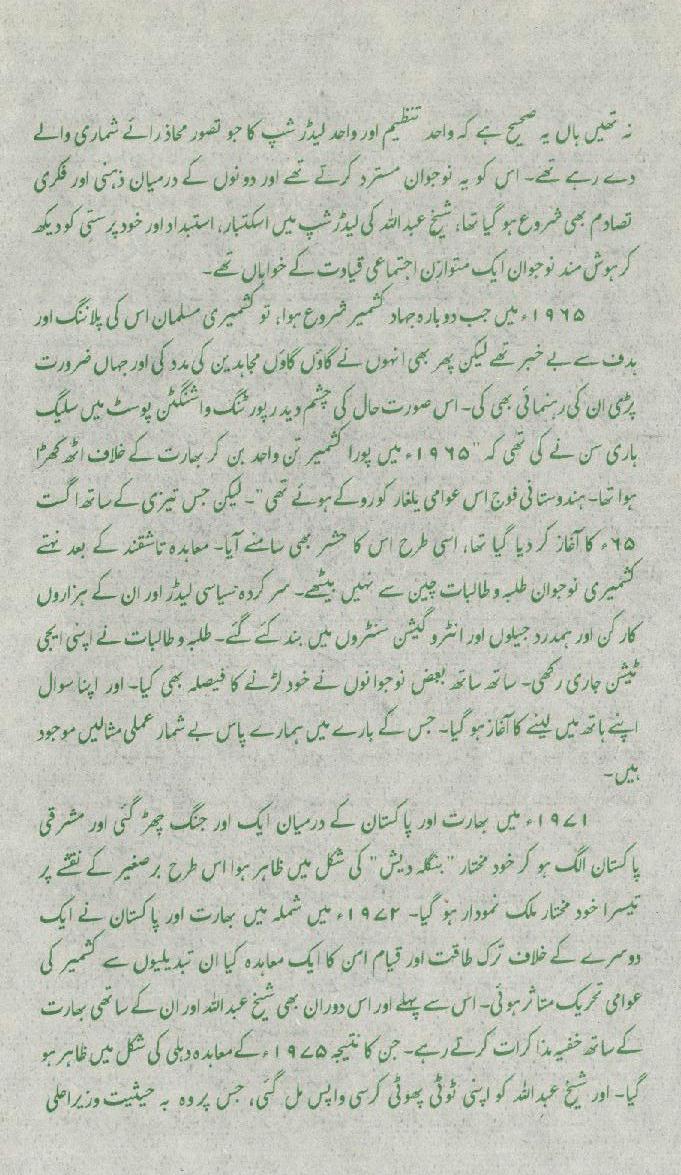 نہ تھیں ہاں یہ صحیح ہے کہ واحد تنظیم اور واحد لیڈر شپ کا جو تصور محاذ رائے شماری والے
دے رہے تھے۔ اس کو یہ نوجوان مسترد کرتے تھے اور دونوں کے درمیان ذہنی اور فکری
تصادم بھی شروع ہو گیا تھا، شیخ عبداللہ کی لیڈر شپ میں استکبار، استبداد اور خود پرستی کو دیکھ
کر ہوش مند نوجوان ایک متوازن اجتماعی قیادت کے خواہاں تھے۔
۱۹۶۵ء میں جب دوبارہ جہاد کشمیر شروع ہوا، تو کشمیری مسلمان اس کی پلاننگ اور
ہدف سے بے خبر تھے لیکن پھر بھی انہوں نے گاؤں گاؤں مجاہدین کی مدد کی اور جہاں ضرورت
پڑی ان کی رہنمائی بھی کی۔ اس صورت حال کی چشم دید رپورٹنگ واشنگٹن پوسٹ میں سلیگ
ہاری سن نے کی تھی کہ "۱۹۶۵ء میں پورا کشمیر تن واحد بن کر بھارت کے خلاف اٹھ کھڑا
ہوا تھا۔ ہندوستانی فوج اس عوامی یلغار کو روکے ہوئے تھی"۔ لیکن جس تیزی کے ساتھ اگست
۶۵ء کا آغاز کر دیا گیا تھا، اسی طرح اس کا حشر بھی سامنے آیا۔ معاہدہ تاشقند کے بعد نہتے
کشمیری نوجوان طلبہ و طالبات چین سے نہیں بیٹھے۔ سر کردہ سیاسی لیڈر اور ان کے ہزاروں
کار کن اور ہمدرد جیلوں اور انٹرو گیشن سنٹروں میں بند کئے گئے۔ طلبہ و طالبات نے اپنی ایجی
ٹیشن جاری رکھی۔ ساتھ ساتھ بعض نوجوانوں نے خود لڑنے کا فیصلہ بھی کیا۔ اور اپنا سوال
اپنے ہاتھ میں لینے کا آغاز ہو گیا۔ جس کے بارے میں ہمارے پاس بے شمار عملی مثالیں موجود
ہیں۔
۱۹۷۱ء میں بھارت اور پاکستان کے درمیان ایک اور جنگ چھڑ گئی اور مشرقی
پاکستان الگ ہو کر خود مختار "بنگلہ دیش" کی شکل میں ظاہر ہوا اس طرح برصغیر کے نقشے پر
تیسرا خود مختار ملک نمودار ہو گیا۔ ۱۹۷۲ء میں شملہ میں بھارت اور پاکستان نے ایک
دوسرے کے خلاف ترک طاقت اور قیام امن کا ایک معاہدہ کیا ان تبدیلیوں سے کشمیر کی
عوامی تحریک متاثر ہوئی۔ اس سے پہلے اور اس دوران بھی شیخ عبداللہ اور ان کے ساتھی بھارت
کے ساتھ خفیہ مذاکرات کرتے رہے۔ جن کا نتیجہ ۱۹۷۵ء کے معاہدہ دہلی کی شکل میں ظاہر ہو
گیا۔ اور شیخ عبداللہ کو اپنی ٹوٹی پھوٹی کرسی واپس مل گئی، جس پر وہ بہ حیثیت وزیراعلی